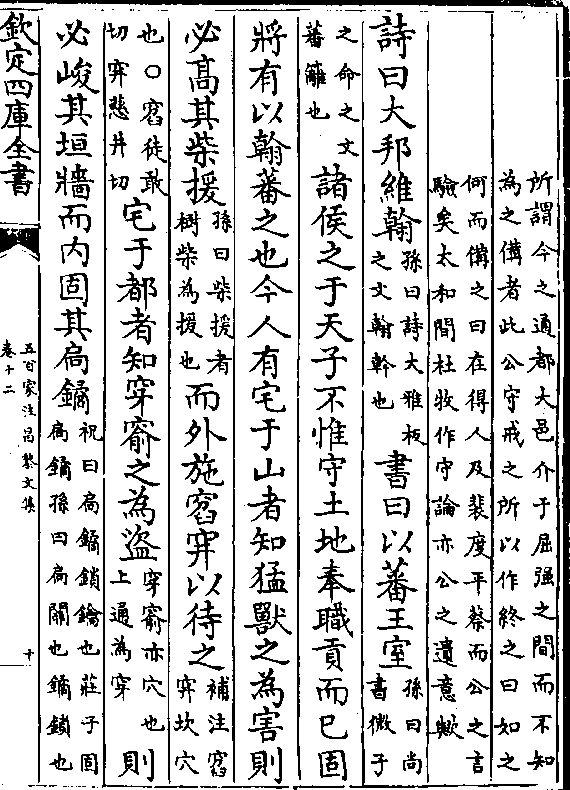 所謂今之通都大邑介于屈强之間而不知
為之備者此公守戒之所以作終之曰如之
何而備之曰在得人及裴度平蔡而公之言
驗矣太和間杜牧作守論亦公之遺意歟
詩曰大邦維翰孫曰詩大雅板之文翰幹也書曰以蕃王室孫曰尚書微子
之命之文蕃籬也諸侯之于天子不惟守土地奉職貢而已固
將有以翰蕃之也今人有宅于山者知猛獸之為害則
必髙其柴援孫曰柴援者樹柴為援也而外施窞穽以待之補注窞穽坎穴
也〇窞徒敢切穽慈井切宅于都者知穿窬之為盜穿窬亦穴也上通為穿則
必峻其垣牆而内固其扄鐍祝曰扄鐍鎖鑰也莊子固扄鐍孫曰扄關也鐍鎖也
欽定四庫全書
五百家注昌黎文集
卷十二
十